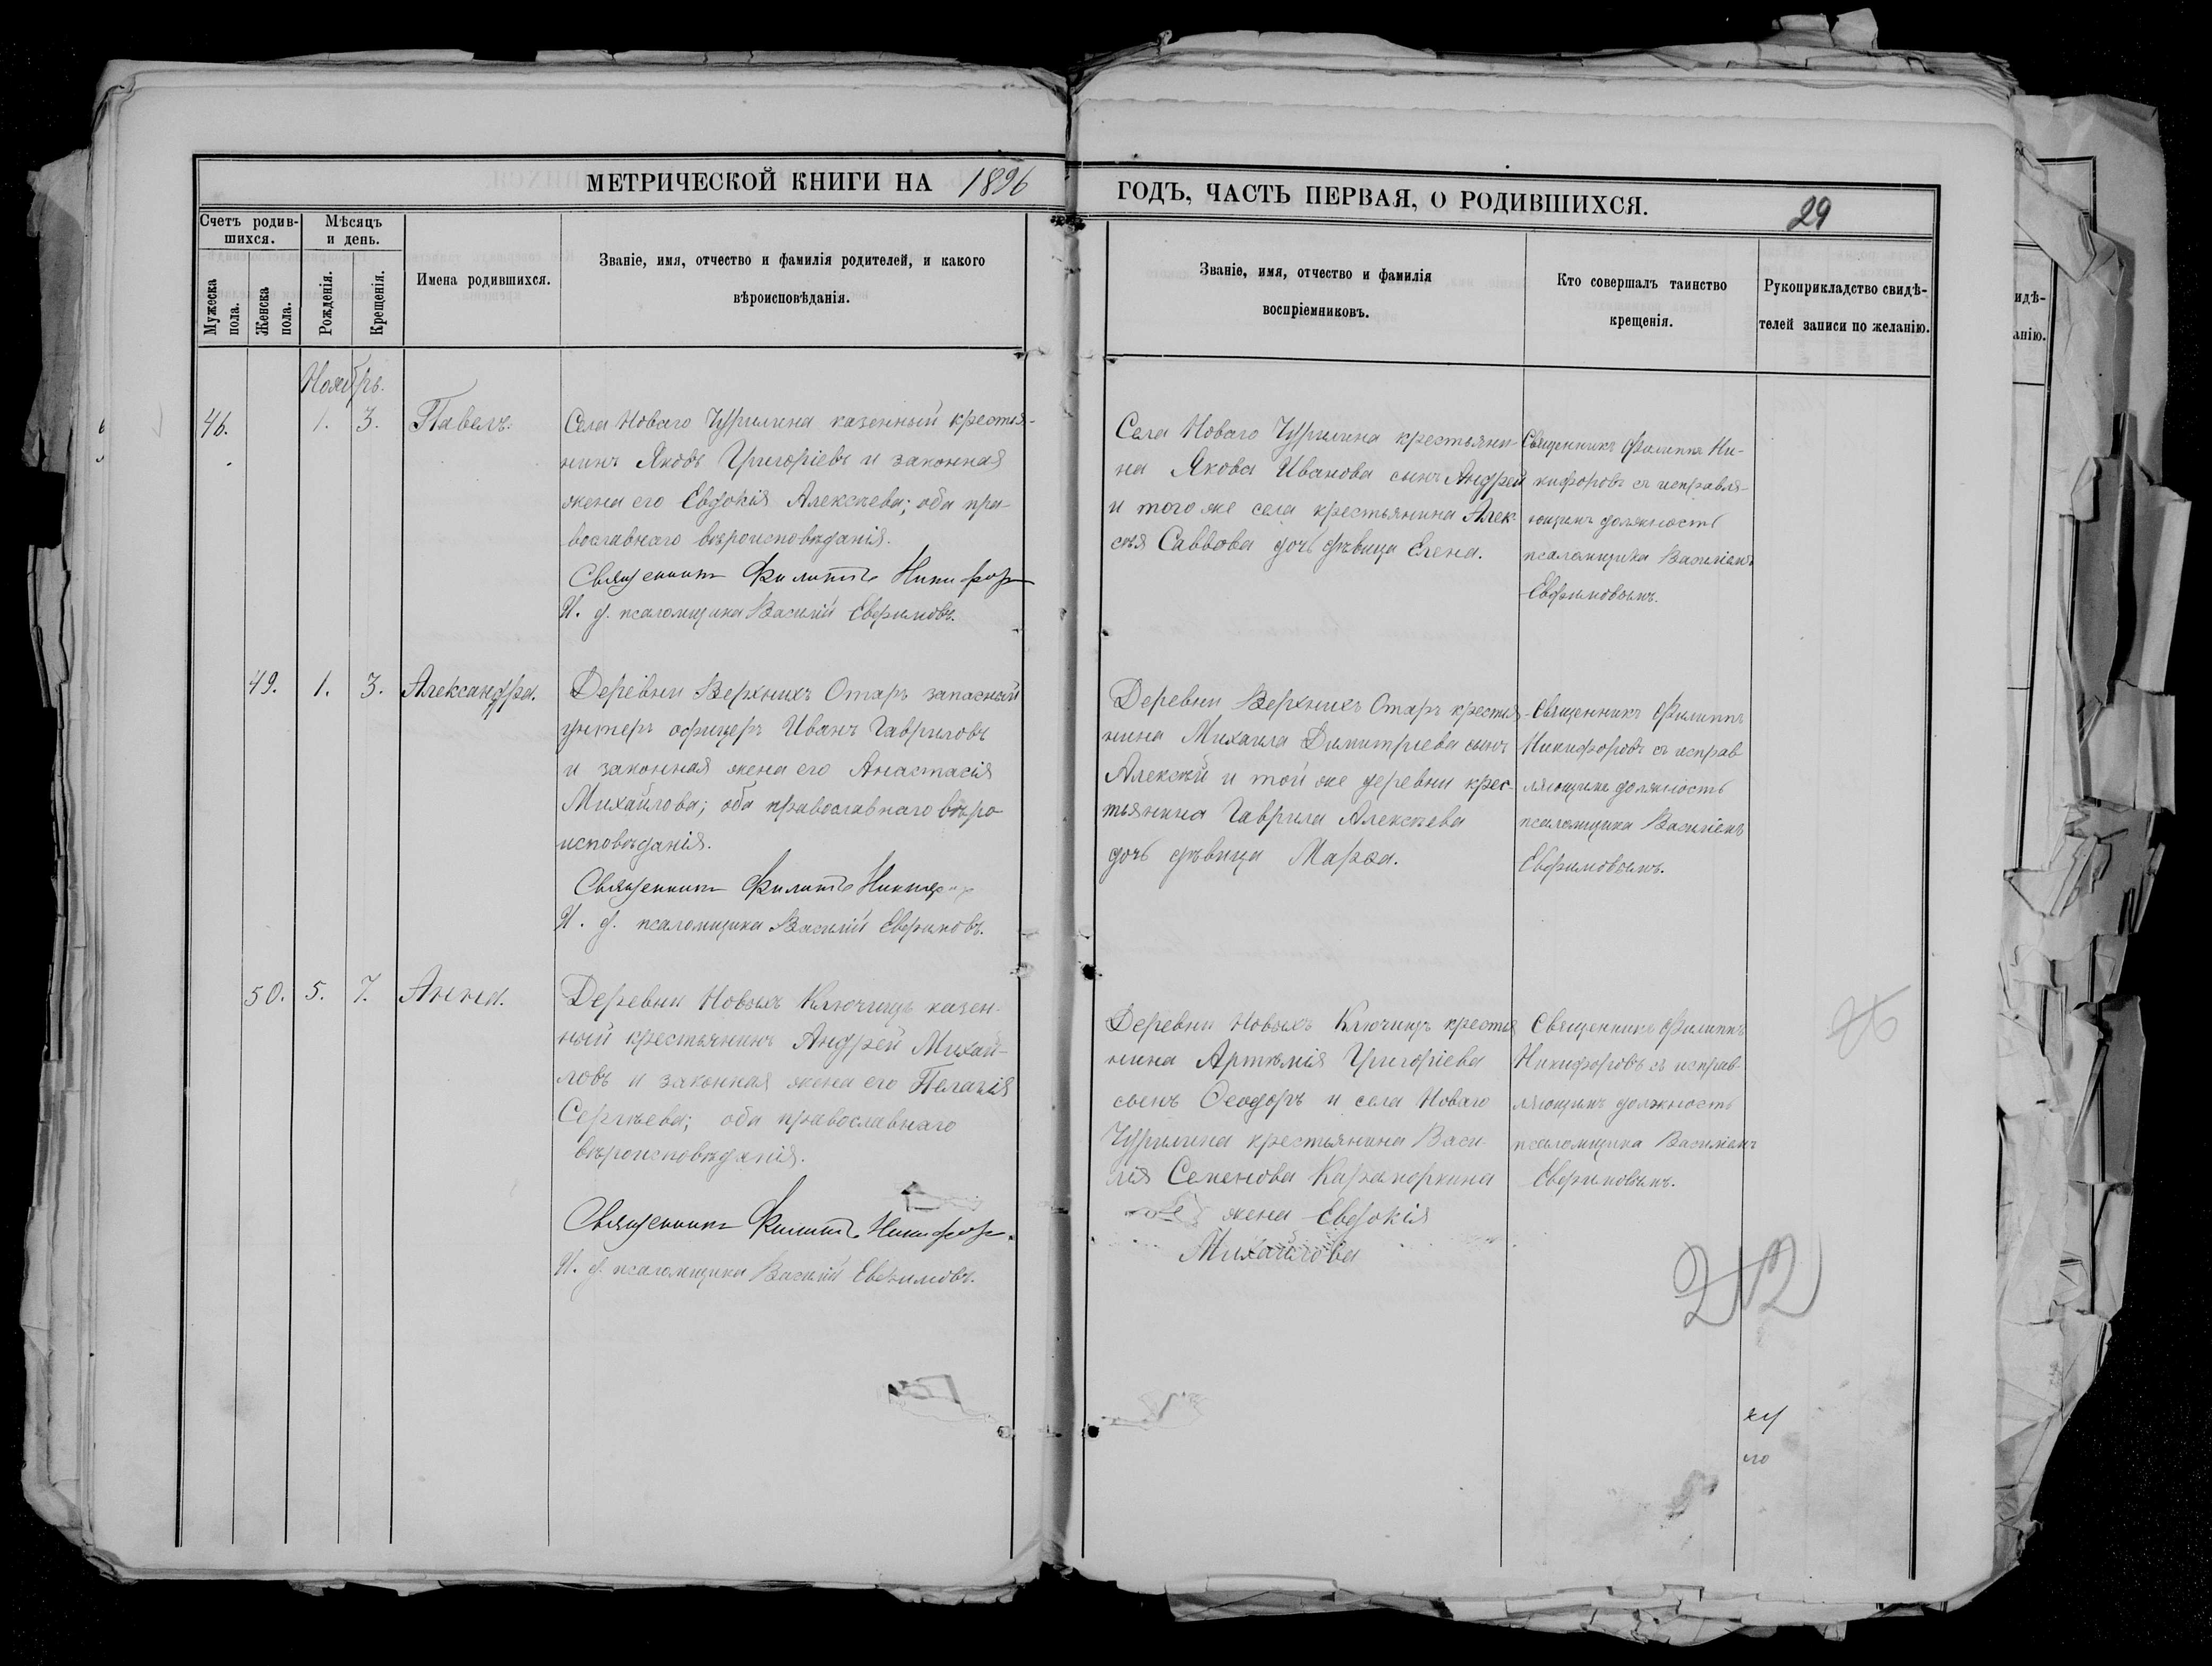 МЕТРИЧЕСКОЙ КНИГИ НА 1896
Счетъ родив-
шихся.
Мѣсяцъ
и день.
Мужеска
пола.
Женска
пола.
Рожденія.
Крещенія.
Имена родившихся.
Званіе, имя, отчество и фамилія родителей, и какого
вѣроисповѣданія.
Ноябрь.
46.
1.
3.
Павелъ.
Села Новаго Чурилина казенный крестья-
нинъ Яковъ Григоріевъ и законная
жена его Евдокія Алексѣева; оба пра-
вославнаго вѣроисповѣданія.
Священникъ Филиппъ Никифоро
И. д. псаломщика Василій Евфимовъ.
49.
1.
3.
Александра.
Деревни Верхнихъ Отаръ запасный
унтеръ офицеръ Иванъ Гавриловъ
и законная жена его Анастасія
Михайлова; оба православнаго вѣро
исповѣданія.
Священникъ Филиппъ
И. д. псаломщика Василій Евфимовъ.
50.
5.
7.
Анна.
Деревни Новыхъ Ключищъ казен-
ный крестьянинъ Андрей Михай-
ловъ и законная жена его Пелагія
Сергѣева; оба православнаго
вѣроисповѣданія.
Священникъ Филиппъ Никифоро
И. д. псаломщика Василій Евфимовъ.
ГОДЪ, ЧАСТЬ ПЕРВАЯ, О РОДИВШИХСЯ.
29
Званіе, имя, отчество и фамилія
воспріемниковъ.
Кто совершалъ таинство
крещенія.
Рукоприкладство свидѣ-
телей записи по желанію.
Села Новаго Чурилина крестьяни-
на Якова Иванова сынъ Андрей
и того же села крестьянина Алек-
сѣя Саввова дочь дѣвица Елена.
Священникъ Филиппъ Ни-
кифоровъ съ исправля-
ющимъ должность
псаломщика Василіемъ
Евфимовымъ.
Деревни Верхнихъ Отаръ крестья-
нина Михаила Димитріева сынъ
Алексѣй и той же деревни крес-
тьянина Гаврила Алексѣева
дочь дѣвица Марѳа.
Священникъ Филиппъ
Никифоровъ съ исправ
ляющимъ должность
псаломщика Василіемъ
Евфимовымъ.
Деревни Новыхъ Ключищъ крестья
нина Артемія Григоріева
сынъ Ѳеодоръ и села Новаго
Чурилина крестьянина Васи-
лія Семенова Карапоркина
жена Евдокія
Михайлова
Священникъ Филиппъ
Никифоровъ съ исправ-
ляющимъ должность
псаломщика Василіемъ
Евфимовымъ.
идѣ-
анію.